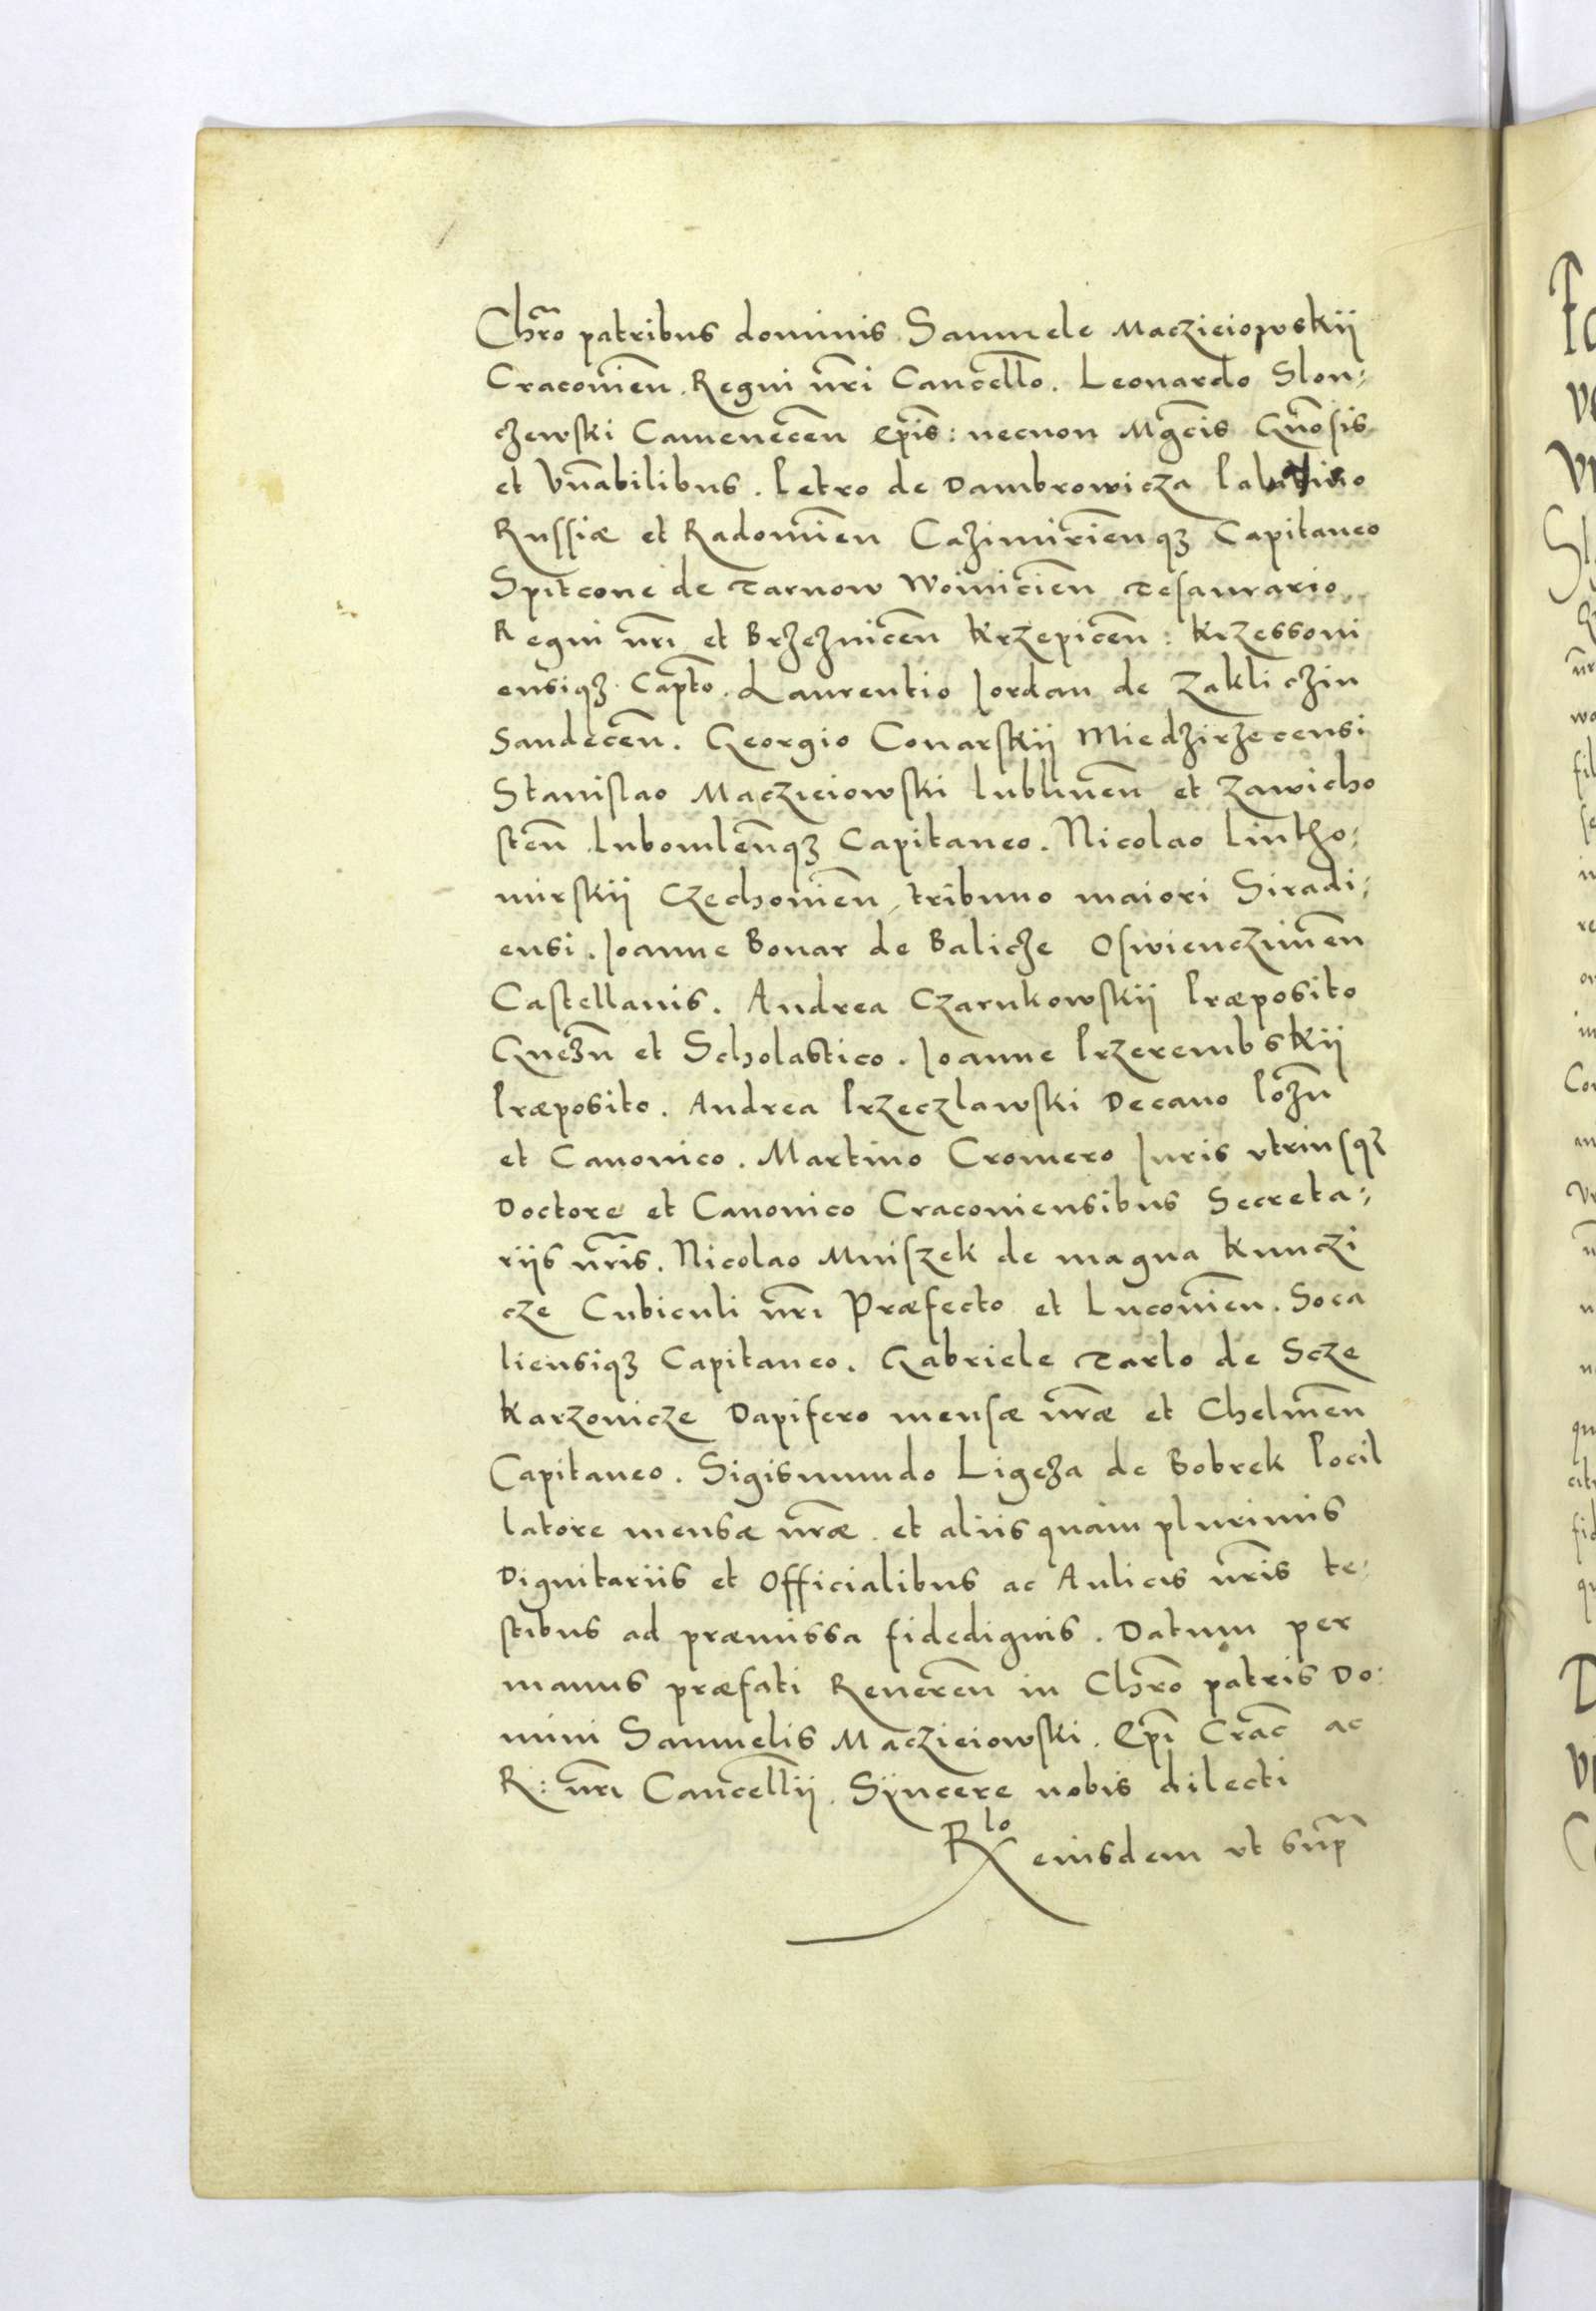 Chr̃o patribus dominis Samuele Maczieiowskij
Cracovień. Regni nr̃i Cancelło. Leonardo Slon:
czewski Cameneceń Ep̃is: necnon Mg̃cis Gño sis
et Vñabilibus. Petro de Dambrowicza Palatino
Russiæ et Radomień Cazimirienqꝫ Capitaneo
Spitcone de Tarnow Woinicień Tesaurario
Regni nr̃i et Brzezniceń Krzepiceń: Krzessoui
ensiqꝫ Capt̃o. Laurentio Jordan de Zakliczin
Sandeceń. Georgio Conarskij Miedzirzecensi
Stanislao Maczieiowski Lublineń et Zawicho
steń Lubomleñqꝫ Capitaneo. Nicolao Lintho:
mirskij Czechovień, tribuno maiori Siradi:
ensi. Joanne Bonar de Balicze Oswiencziмeń
Castellanis. Andrea Czarnkowskij Præposito
Gnezñ et Scholastico. Joanne Przerembskij
Præposito. Andrea Przeczlawski Decano Pozñ
et Canonico. Martino Cromero Juris utriusqꝫ
Doctore et Canonico Cracoviensibus Secreta:
riis nr̃is. Nicolao Mniszek de magna Kunczi
cze Cubiculi nr̃i Præfecto et Lucovień. Soca
liensiqꝫ Capitaneo. Gabriele Tarlo de Scze
karzovicze Dapifero mensæ nr̃æ et Chelmeń
Capitaneo. Sigismundo Ligeza de Bobrek Pocil
latore mensæ nr̃æ. et aliis quam plurimis
Dignitariis et Officialibus ac Aulicis nr̃is te:
stibus ad præmissa fidedignis. Datum per
manus præfati Revereñ in Chr̃o patris Do:
mini Samuelis Maczieiowski. Ep̃i Crac̃ ac
R: nr̃i Cancellij. Syncere nobis dilecti
Rlo eiusdem ut sup̃